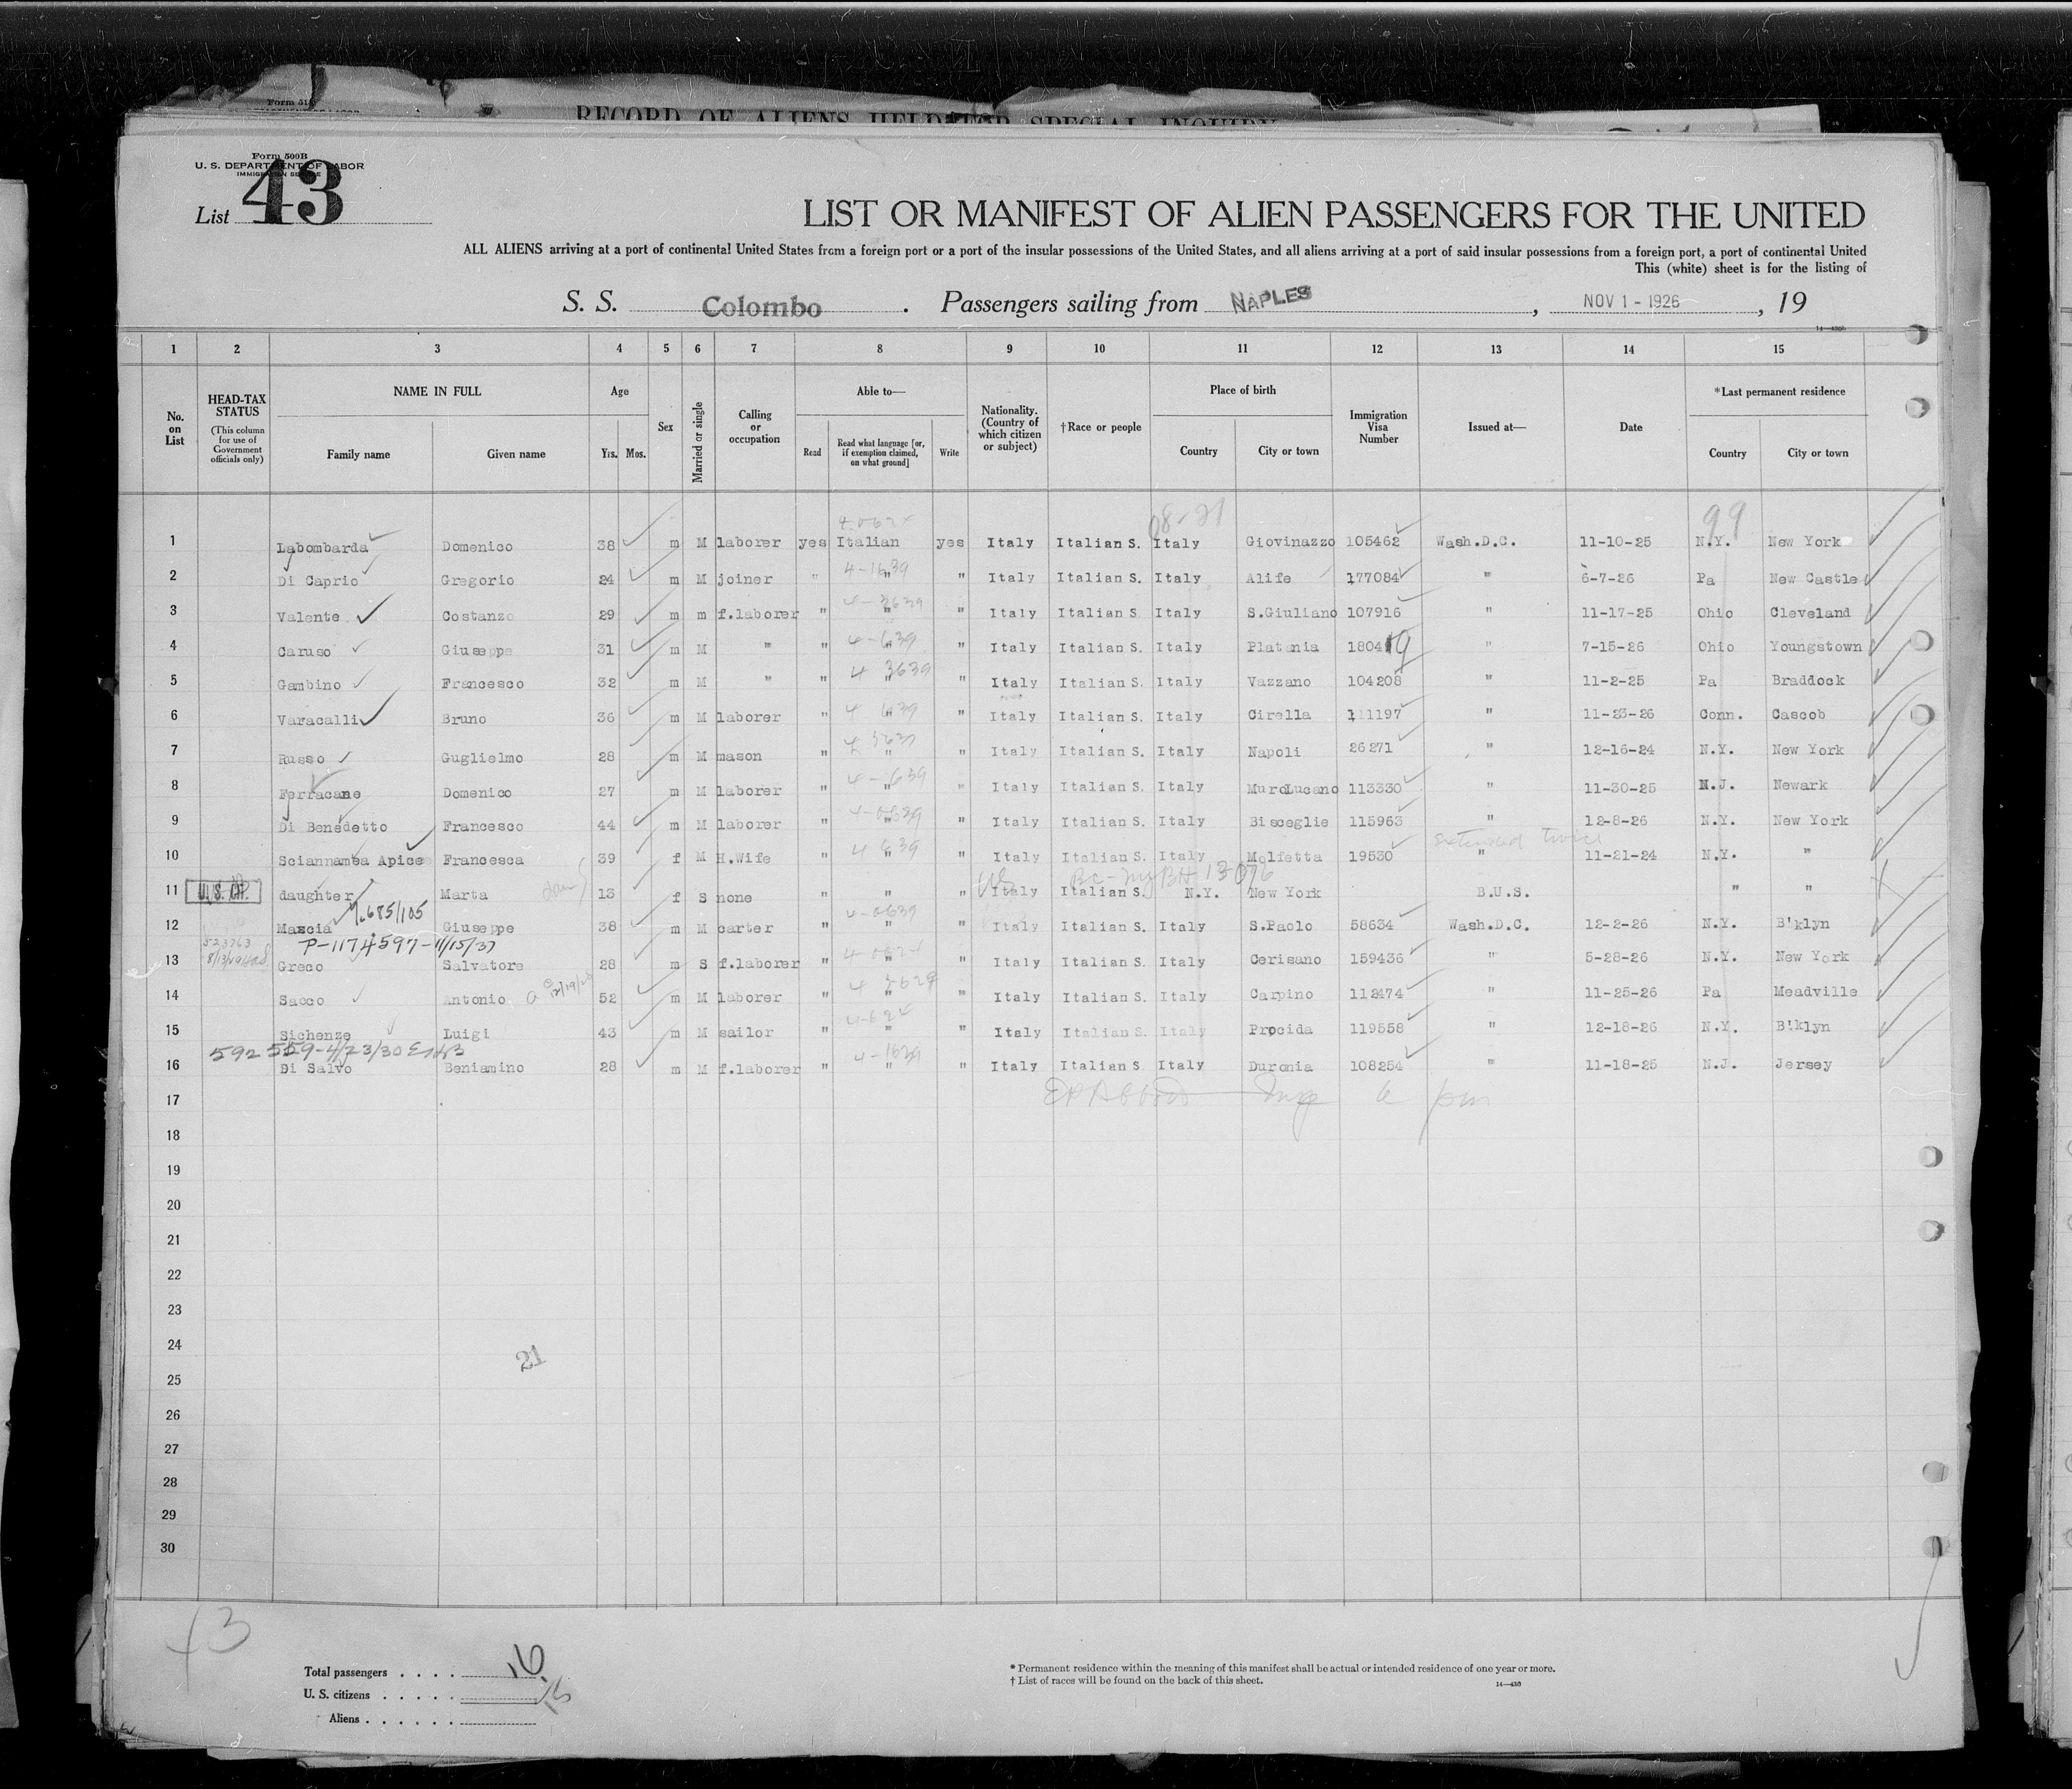 Form 519
RECORD OF ALIENS HELD FOR SPECIAL INQUIRY
Form 500B
U. S. DEPARTMENT OF LABOR
IMMIGRATION SERVICE
List 43
LIST OR MANIFEST OF ALIEN PASSENGERS FOR THE UNITED
ALL ALIENS arriving at a port of continental United States from a foreign port or a port of the insular possessions of the United States, and all aliens arriving at a port of said insular possessions from a foreign port, a port of continental United
This (white) sheet is for the listing of
S. S. Colombo . Passengers sailing from NAPLES , NOV 1 - 1926 , 19
1 2 3 4 5 6 7 8 9 10 11 12 13 14 15
No. on List HEAD-TAX STATUS (This column for use of Government officials only) NAME IN FULL Family name Given name Age Yrs. Mos. Sex Married or single Calling or occupation Able to— Read Read what language [or, if exemption claimed, on what ground] Write Nationality. (Country of which citizen or subject) †Race or people Place of birth Country City or town Immigration Visa Number Issued at— Date *Last permanent residence Country City or town
08-21 99
1 Labombarda Domenico 38 m M laborer yes Italian yes Italy Italian S. Italy Giovinazzo 105462 Wash.D.C. 11-10-25 N.Y. New York
4-1639
2 Di Caprio Gregorio 24 m M joiner " " " Italy Italian S. Italy Alife 177084 " 6-7-26 Pa New Castle
4-3639
3 Valente Costanzo 29 m m f.laborer " " " Italy Italian S. Italy S.Giuliano 107916 " 11-17-25 Ohio Cleveland
4-639
4 Caruso Giuseppe 31 m M " " " " Italy Italian S. Italy Platania 180419 " 7-15-26 Ohio Youngstown
4 3639
5 Gambino Francesco 32 m M " " " " Italy Italian S. Italy Vazzano 104208 " 11-2-25 Pa Braddock
4 639
6 Varacalli Bruno 36 m M laborer " " " Italy Italian S. Italy Cirella 111197 " 11-23-26 Conn. Cascob
7 Russo Guglielmo 28 m M mason " " " Italy Italian S. Italy Napoli 26271 " 12-16-24 N.Y. New York
4-639
8 Ferracane Domenico 27 m M laborer " " " Italy Italian S. Italy MuroLucano 113330 " 11-30-25 N.J. Newark
9 Di Benedetto Francesco 44 m M laborer " " " Italy Italian S. Italy Bisceglie 115963 " 12-8-26 N.Y. New York
4 639 Extended twice
10 Sciannamea Apice Francesca 39 f M H.Wife " " " Italy Italian S. Italy Molfetta 19530 " 11-21-24 N.Y. "
US BC-NY BH 13-076
11 U.S. CIT. daughter Marta 13 f S none " " " Italy Italian S. N.Y. New York B.U.S. " "
685/105
4-0639
12 Mascia Giuseppe 38 m M carter " " " Italy Italian S. Italy S.Paolo 58634 Wash.D.C. 12-2-26 N.Y. B'klyn
P-1174597-11/15/37
13 Greco Salvatore 28 m S f.laborer " " " Italy Italian S. Italy Cerisano 159436 " 5-28-26 N.Y. New York
14 Sacco Antonio 52 m M laborer " " " Italy Italian S. Italy Carpino 112474 " 11-25-26 Pa Meadville
15 Sichenze Luigi 43 m M sailor " " " Italy Italian S. Italy Procida 119558 " 12-18-26 N.Y. B'klyn
592 559-4/23/30
4-1639
16 Di Salvo Beniamino 28 m M f.laborer " " " Italy Italian S. Italy Duronia 108254 " 11-18-25 N.J. Jersey
17
18
19
20
21
22
23
24
21
25
26
27
28
29
30
43
Total passengers . . . . 16
U. S. citizens . . . . . 15
Aliens . . . . . .
* Permanent residence within the meaning of this manifest shall be actual or intended residence of one year or more.
† List of races will be found on the back of this sheet.
14—430